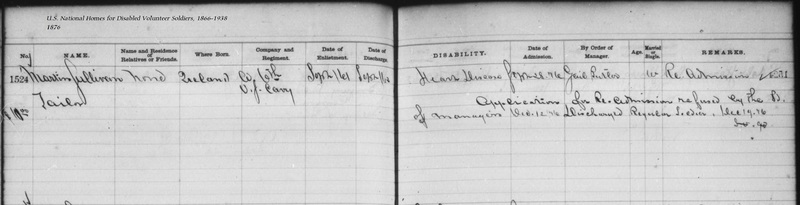 U.S. National Homes for Disabled Volunteer Soldiers, 1866-1938
1876
No. NAME. Name and Residence of Relatives or Friends. Where Born. Company and Regiment. Date of Enlistment. Date of Discharge.
1524 Martin Sullivan None Ireland Co. 6th Sept 1/61 Sept 1/64
U.S. Cavy
Tailor
DISABILITY. Date of Admission. By Order of Manager. Age. Married or Single. REMARKS.
Heart Disease 76 Re Admission
Application for Re-admission refused by the B.
of managers Dec. 12. 76 Discharged Regular Soldier. Dec 19. 76